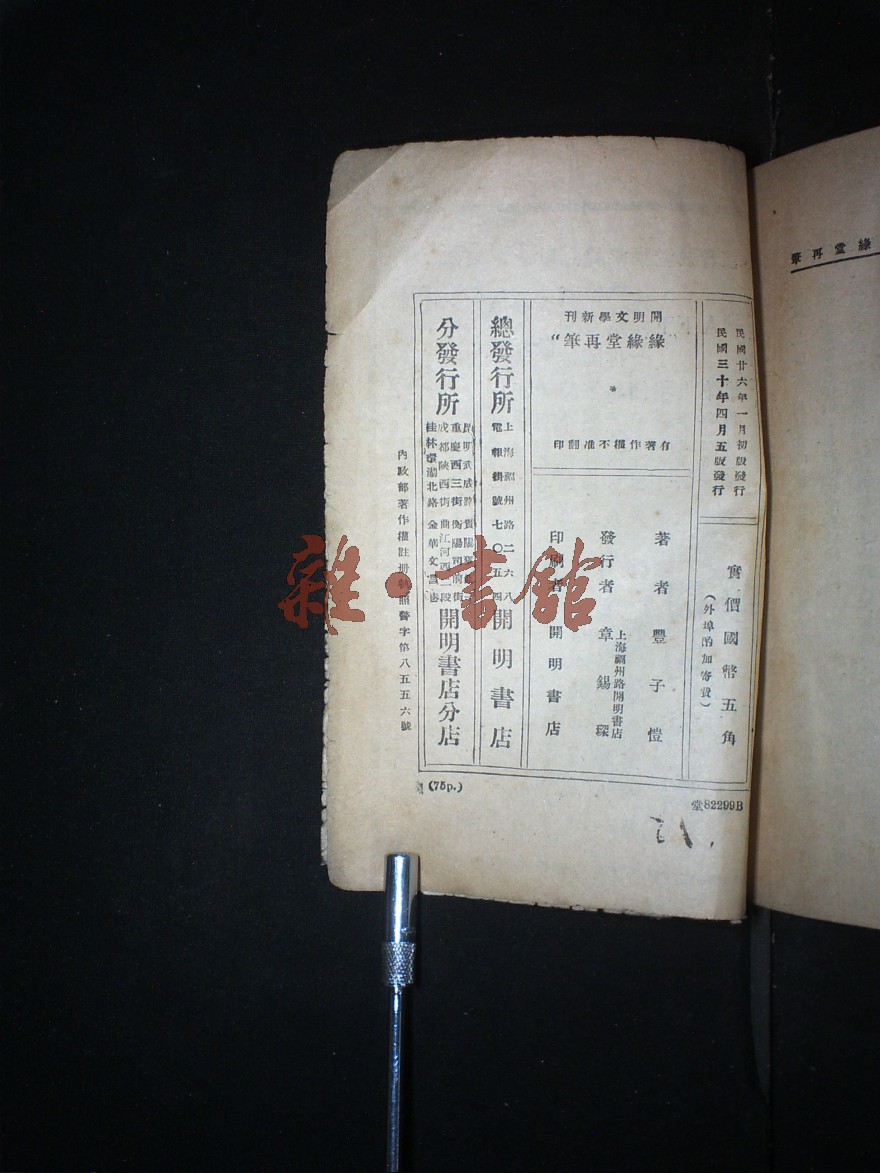 緣堂再筆
民國廿六年一月初版發行
民國三十年四月五版發行
實價國幣五角
(外埠酌加寄費)
開明文學新刊
“緣緣堂再筆”
有著作權不准翻印
著者 豐子愷
發行者 章錫琛
上海福州路開明書店
印刷者 開明書店
總發行所
上海福州路二六八
電報掛號七〇五四
開明書店
分發行所
昆明武成路
重慶西三街衡陽司前街
成都陝西街曲江河西一段
桂林環湖北路金華文昌巷
開明書店分店
內政部著作權註冊執照警字第八五五六號
(75p.)
堂82299B
雜·書館